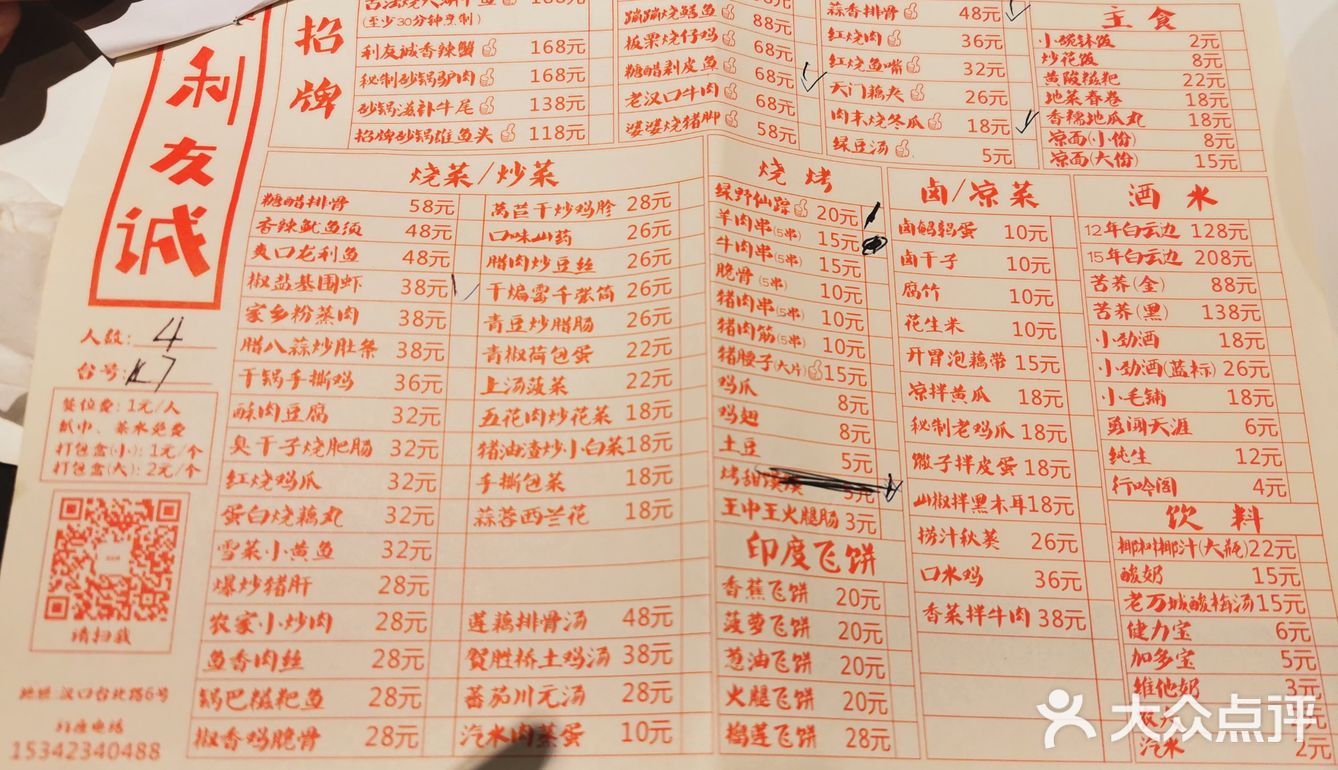 利友诚
人数: 4
台号: K7
餐位费: 1元/人
纸巾、茶水免费
打包盒(小): 1元/个
打包盒(大): 2元/个
请扫我
地址:汉口台北路6号
订座电话
15342340488
招牌
(至少30分钟烹制)
利友诚香辣蟹 168元
秘制砂锅驴肉 168元
砂锅滋补牛尾 138元
招牌砂锅雄鱼头 118元
蹦蹦烧鳝鱼 88元
板栗烧仔鸡 68元
糖醋剥皮鱼 68元
老汉口牛肉 68元
婆婆烧猪脚 58元
蒜香排骨 48元
红烧肉 36元
红烧鱼嘴 32元
天门藕夹 26元
肉末烧冬瓜 18元
绿豆汤 5元
主食
小碗钵饭 2元
炒花饭 8元
黄陂糍粑 22元
地菜春卷 18元
香糯地瓜丸 18元
凉面(小份) 8元
凉面(大份) 15元
烧菜/炒菜
糖醋排骨 58元
香辣鱿鱼须 48元
爽口龙利鱼 48元
椒盐基围虾 38元
家乡粉蒸肉 38元
腊八蒜炒肚条 38元
干锅手撕鸡 36元
酥肉豆腐 32元
臭干子烧肥肠 32元
红烧鸡爪 32元
蛋白烧藕丸 32元
雪菜小黄鱼 32元
爆炒猪肝 28元
农家小炒肉 28元
鱼香肉丝 28元
锅巴糍粑鱼 28元
椒香鸡脆骨 28元
莴苣干炒鸡胗 28元
口味山药 26元
腊肉炒豆丝 26元
干煸雷干张筒 26元
青豆炒腊肠 26元
青椒荷包蛋 22元
上汤菠菜 22元
五花肉炒花菜 18元
猪油渣炒小白菜 18元
手撕包菜 18元
蒜蓉西兰花 18元
莲藕排骨汤 48元
贺胜桥土鸡汤 38元
番茄川元汤 28元
汽水肉蒸蛋 10元
烧烤
绿野仙踪 20元
羊肉串(5串) 15元
牛肉串(5串) 15元
脆骨(5串) 10元
猪肉串(5串) 10元
猪肉筋(5串) 10元
猪腰子(大片) 15元
鸡爪 8元
鸡翅 8元
土豆 5元
烤甜馍馍 5元
王中王火腿肠 3元
印度飞饼
香蕉飞饼 20元
菠萝飞饼 20元
葱油飞饼 20元
火腿飞饼 20元
榴莲飞饼 28元
卤/凉菜
卤鹌鹑蛋 10元
卤干子 10元
腐竹 10元
花生米 10元
开胃泡藕带 15元
凉拌黄瓜 18元
秘制老鸡爪 18元
馓子拌皮蛋 18元
山椒拌黑木耳 18元
捞汁秋葵 26元
口水鸡 36元
香菜拌牛肉 38元
酒水
12年白云边 128元
15年白云边 208元
苦荞(金) 88元
苦荞(黑) 138元
小劲酒 18元
小劲酒(蓝标) 26元
小毛铺 18元
勇闯天涯 6元
纯生 12元
行吟阁 4元
饮料
椰树椰汁(大瓶) 22元
酸奶 15元
老万城酸梅汤 15元
健力宝 6元
加多宝 5元
维他奶 3元
汽水 2元
大众点评